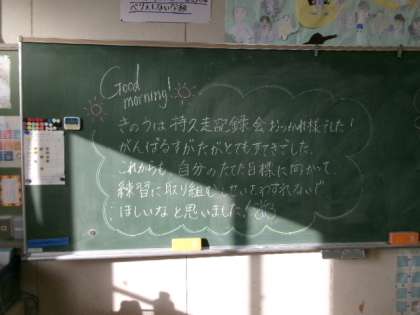 Good
morning!
きのうは持久走記録会おつかれ様でした!
がんばるすがたがとてもすてきでした。
これからも、自分のたてた目標に向かって、
練習に取り組むしせいをわすれないで
ほしいなと思いました!